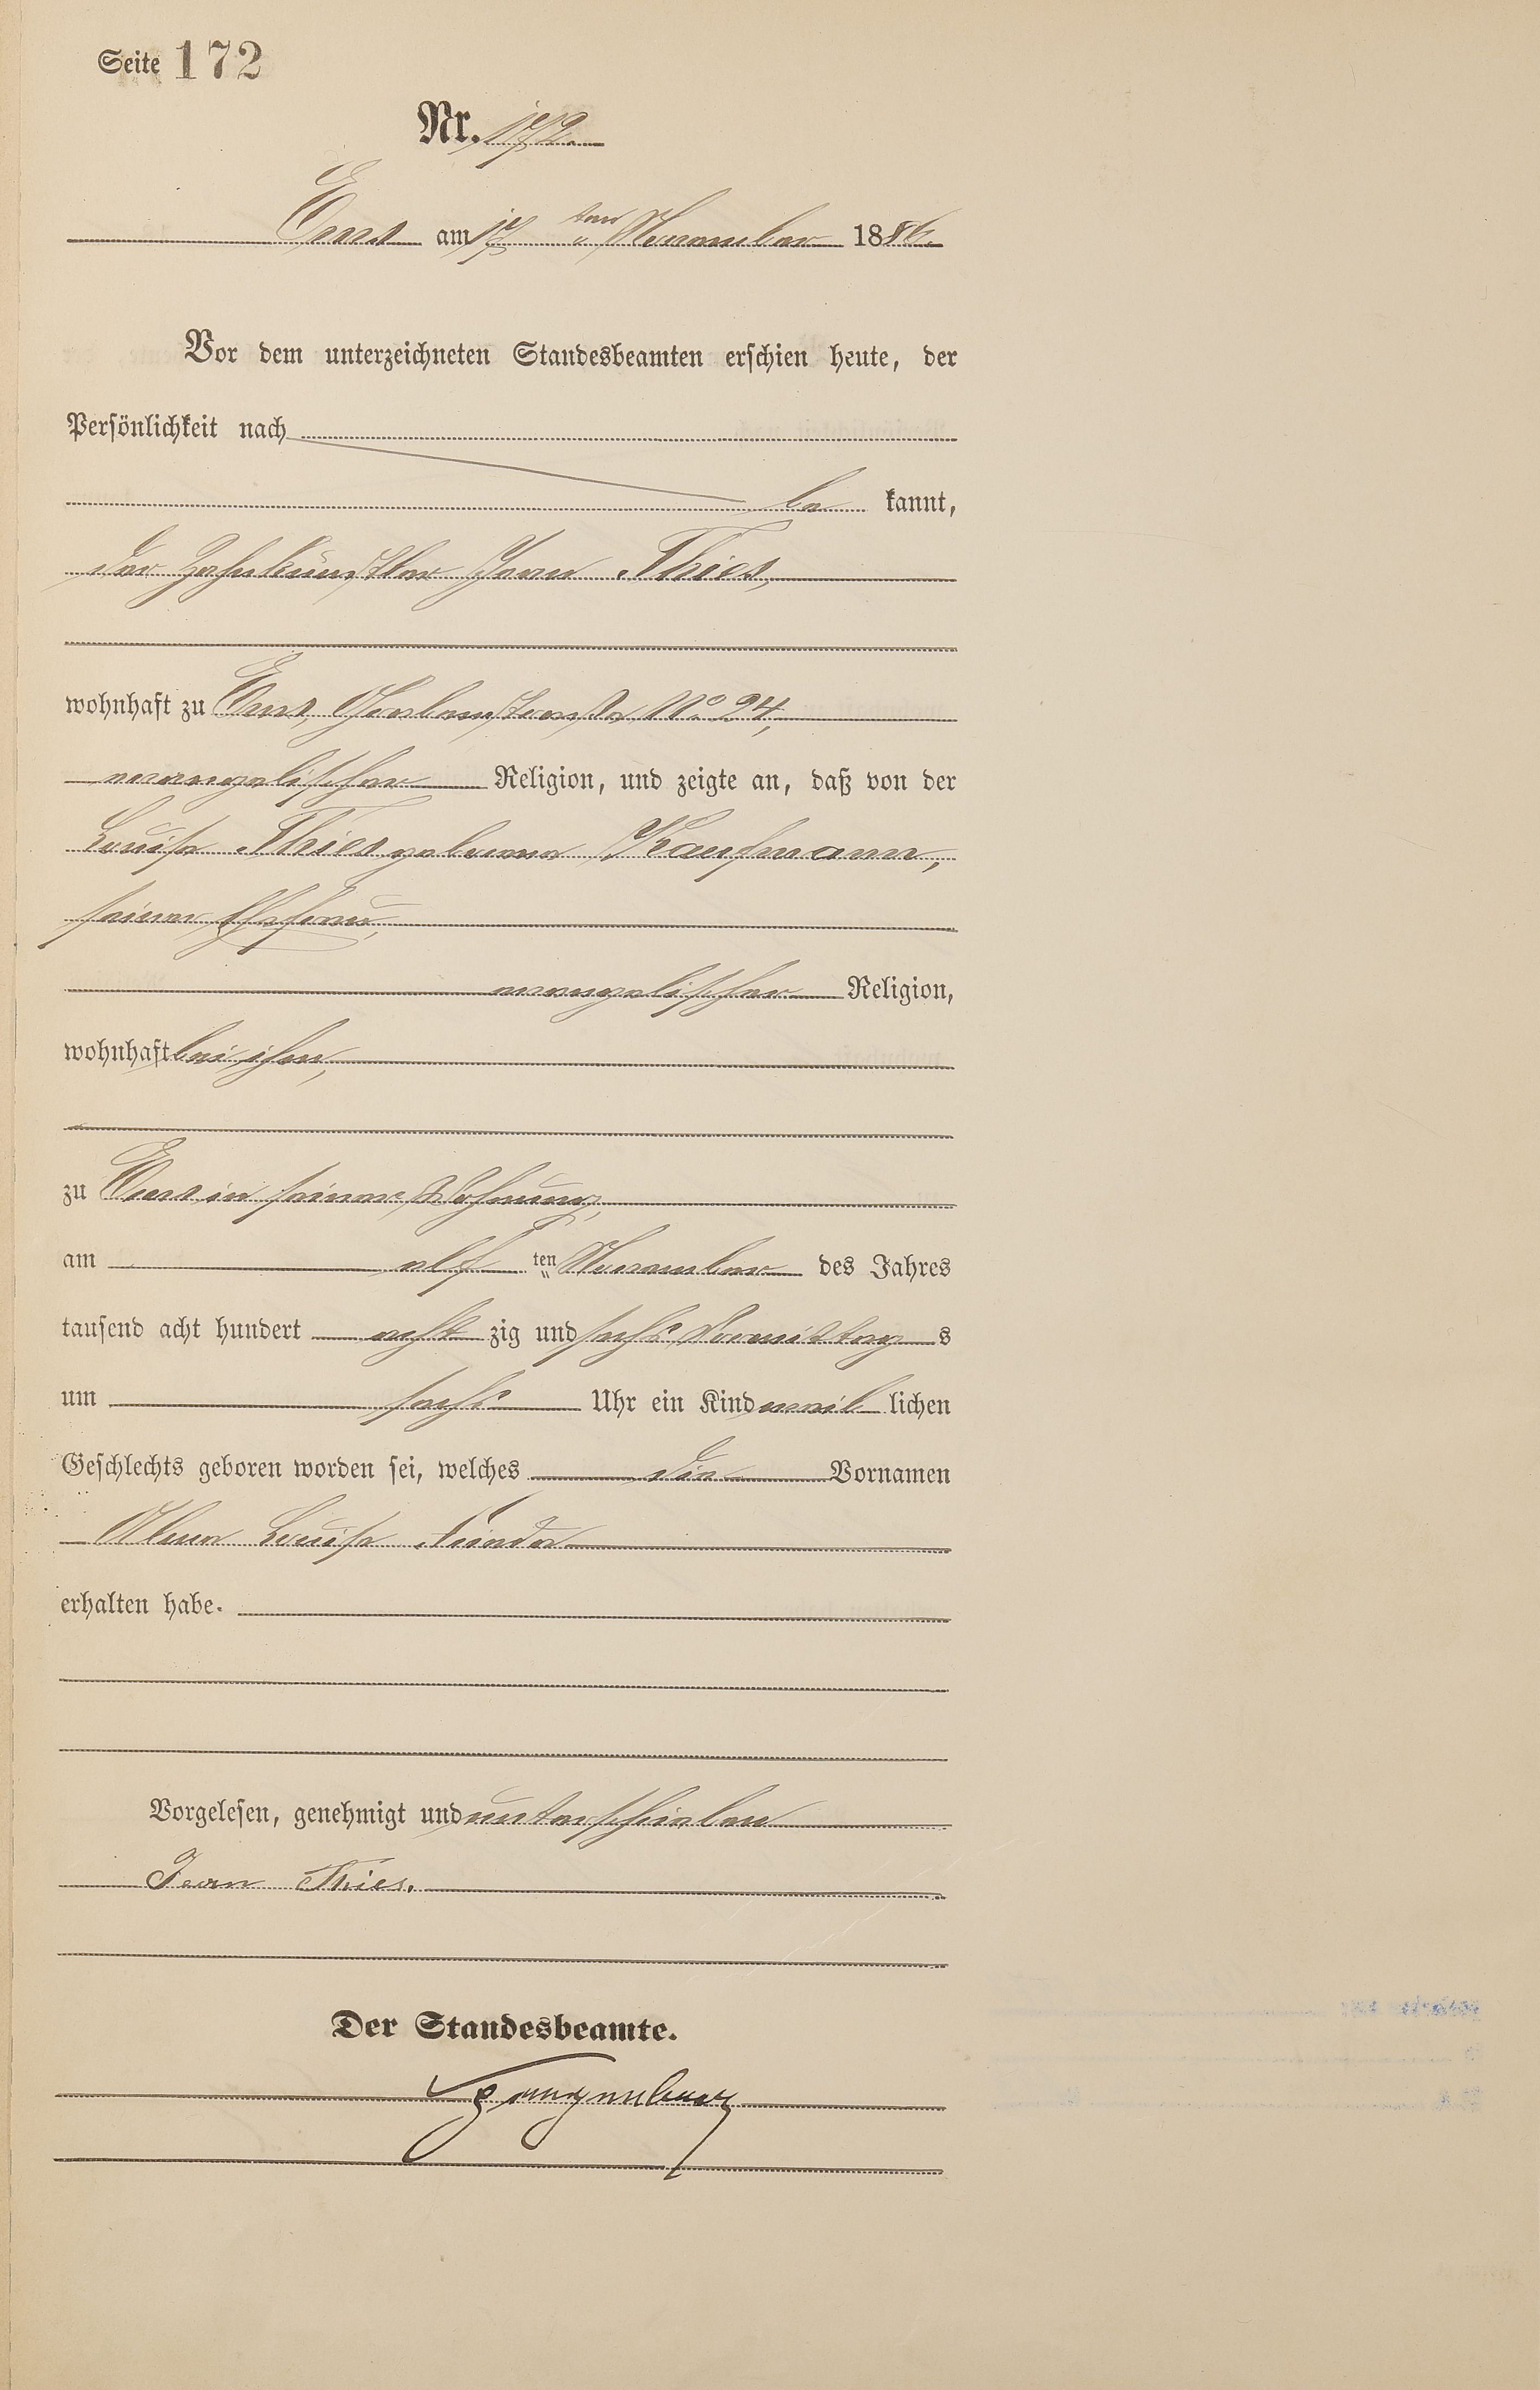 Seite 172
Nr. 172.
Ems am 17ten November 1886.
Vor dem unterzeichneten Standesbeamten erschien heute, der
Persönlichkeit nach
be kannt,
der Zahnkünstler Jean Thies,
wohnhaft zu Ems, No 24,
evangelischer Religion, und zeigte an, daß von der
Louise Thies geborene Kaufmann,
seiner Ehefrau,
evangelischer Religion,
wohnhaft bei ihm,
zu Ems in seiner Wohnung,
am elf ten November des Jahres
tausend acht hundert acht zig und sechs Vormittag s
um sechs Uhr ein Kind weib lichen
Geschlechts geboren worden sei, welches die Vornamen
Louise
erhalten habe.
Vorgelesen, genehmigt und unterschrieben
Jean Thies.
Der Standesbeamte.